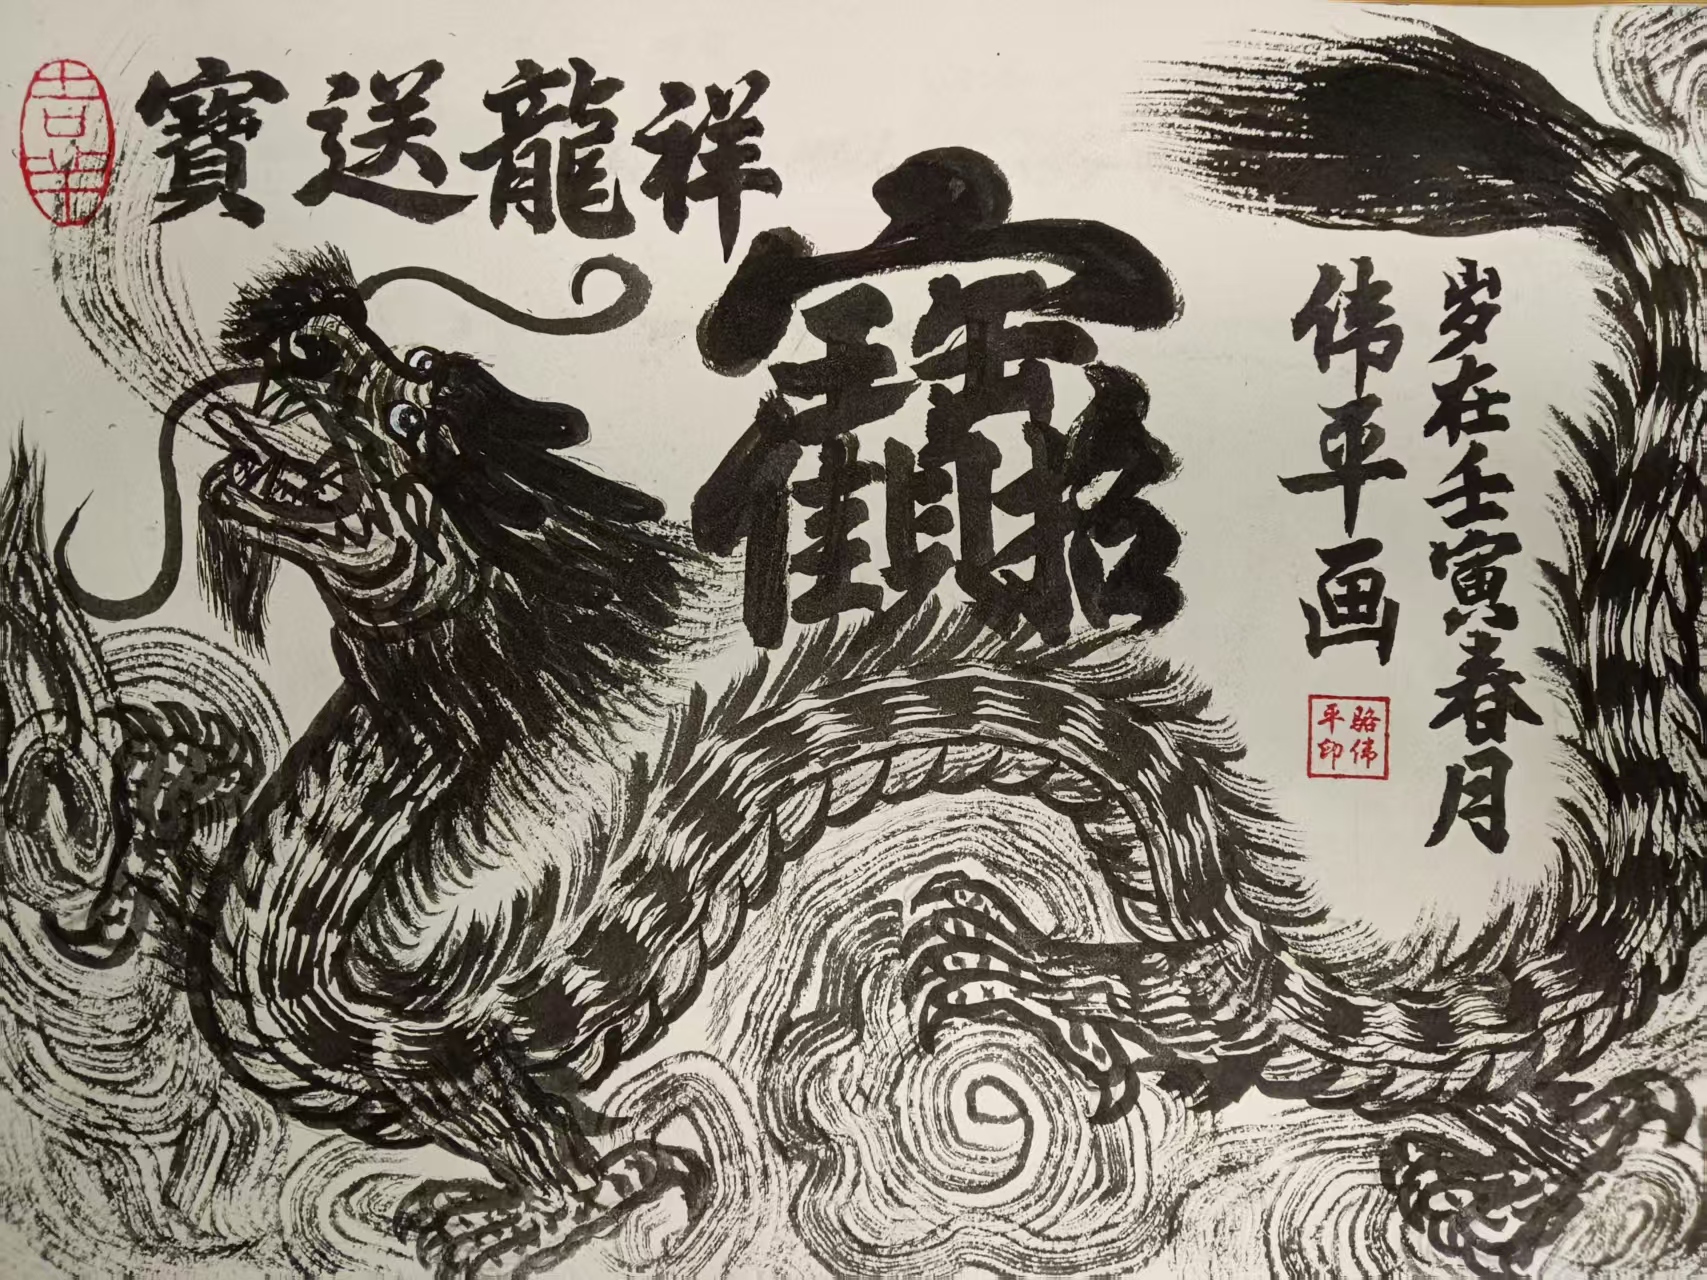 祥龍送寶
招財進寶
岁在壬寅春月
伟平画
骆伟
平印
吉羊